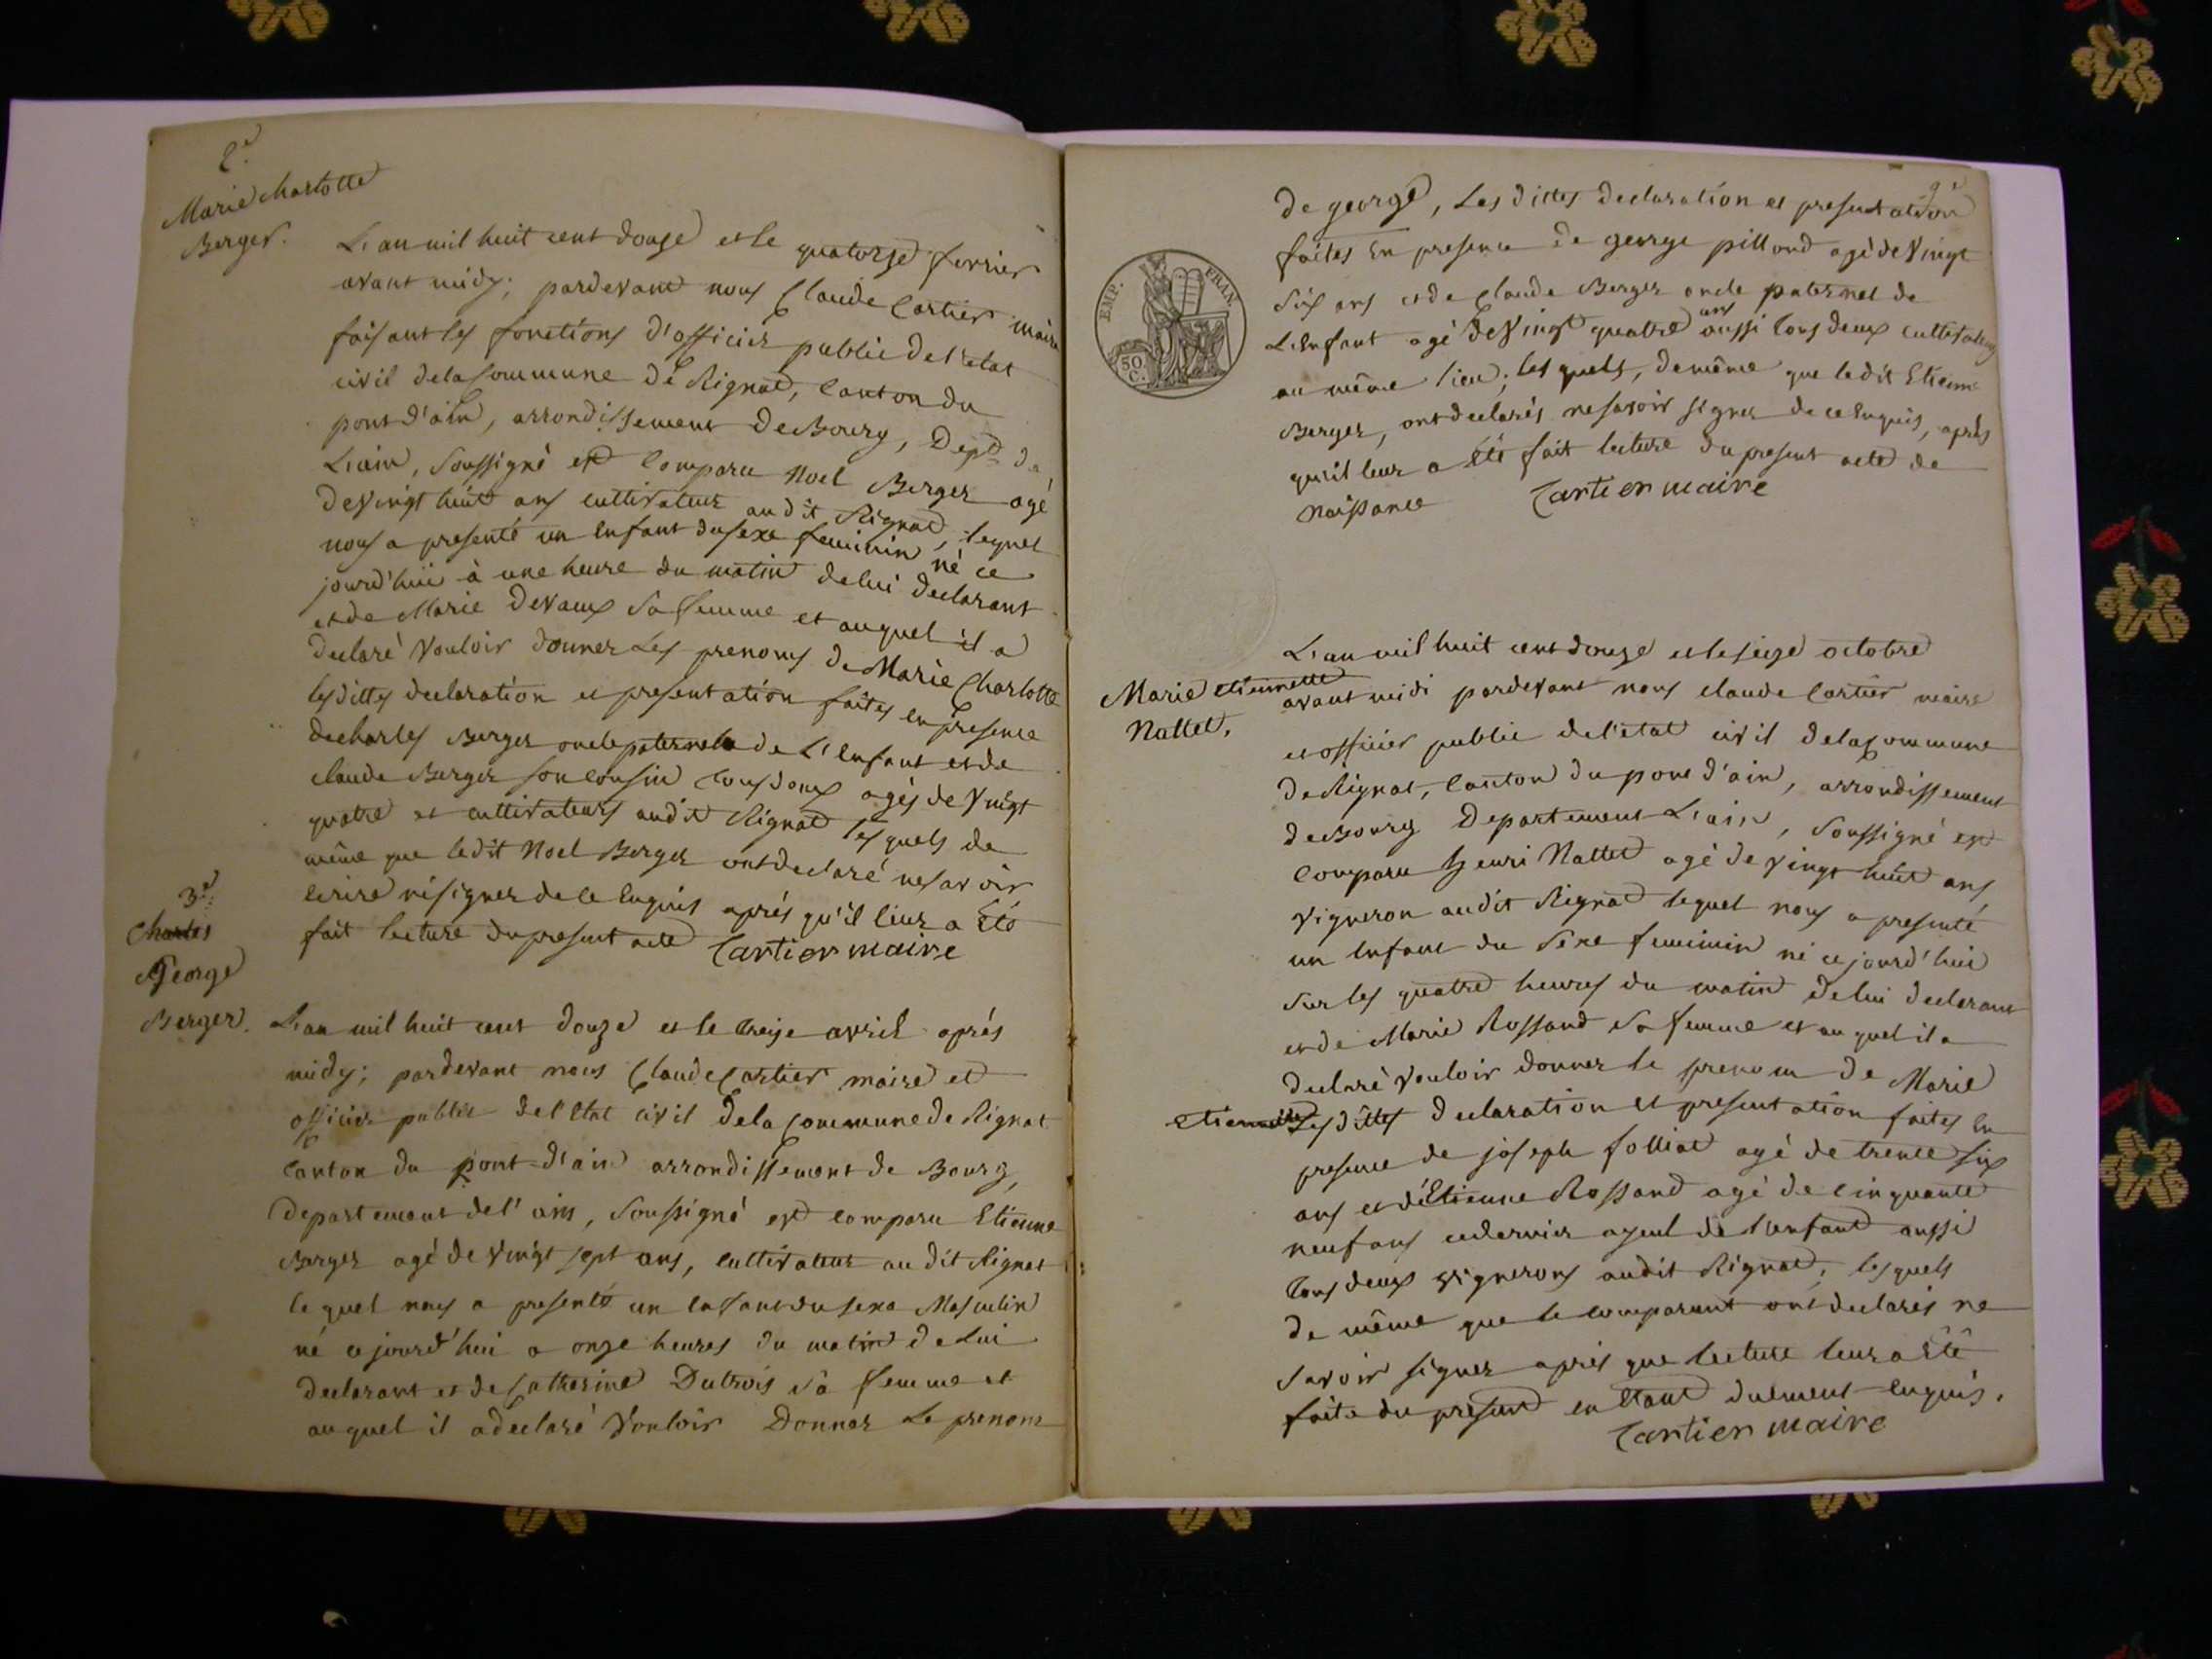 2e
Marie Charlotte
Berger.
L'an mil huit cent douze et le quatorze fevrier
avant midy; pardevant nous Claude Cartier maire
faisant les fonctions d'officier public de l'etat
civil de la Commune de Rignat, Canton du
pont d'ain, arrondissement de Bourg, Dept de
L'ain, Soussigné est Comparu Noel Berger agé
de Vingt huit ans cultivateur audit Rignat, lequel
nous a presenté un Enfant du sexe feminin né ce
jourd'hui à une heure du matin de lui declarant
et de Marie Devaux Sa femme et auquel il a
declaré Vouloir donner Les prenoms de Marie Charlotte
les dittes declaration et presentation faites en presence
de charles Berger oncle paternel de L'Enfant et de
claude Berger son Cousin tous deux agés de Vingt
quatre et cultivateurs audit Rignat lesquels de
même que ledit Noel Berger ont declaré ne savoir
ecrire ni signer de ce Enquis aprés qu'il leur a Eté
fait lecture du present acte Cartier maire
3e
Charles
George
Berger.
L'an mil huit cent douze et le treize avril aprés
midy; pardevant nous Claude Cartier maire et
officier public de l'Etat civil de la Commune de Rignat
Canton du pont-d'ain arrondissement de Bourg,
Departement de l'ain, Soussigné est Comparu Etienne
Berger agé de Vingt sept ans, Cultivateur au dit Rignat
le quel nous a presenté un Enfant du sexe Masculin
né ce jourd'hui a onze heures du matin de Lui
declarant et de Catherine Dutrois sa femme et
au quel il a declaré Vouloir Donner Le prenom
de george, Les dittes declaration et presentation
faites En presence de george pillond agé de Vingt
Six ans et de Claude Berger oncle paternel de
L'Enfant agé de Vingt quattre ans aussi tous deux cultivateurs
au même lieu; les quels, de même que ledit Etienne
Berger, ont declarés ne savoir signer de ce Enquis, aprés
qu'il leur a Eté fait lecture du present acte de
Naissance Cartier maire
EMP. FRAN.
50.
C.
Marie etiennette
Nattet.
L'an mil huit cent douze et le seize octobre
avant midi pardevant nous claude Cartier maire
et officier public de l'etat civil de la Commune
de Rignat, Canton du pont d'ain, arrondissement
de Bourg Departement L'ain, Soussigné est
Comparu henri Nattet agé de Vingt huit ans,
Vigneron audit Rignat lequel nous a presenté
un Enfant du Sexe feminin né ce jourd'hui
Sur les quatre heures du matin de lui declarant
et de Marie Rossand Sa femme et au quel il a
declaré Vouloir donner le prenom de Marie
Etiennette Les dittes declaration et presentation faites En
presence de joseph folliat agé de trente six
ans et d'Etienne Rossand agé de Cinquante
neuf ans ce dernier ayeul de l'enfant aussi
tous deux Vignerons audit Rignat, lesquels
de même que le comparant ont declarés ne
Savoir signer aprés que lecture leur a Eté
faite du present en Etant duement Enquis.
Cartier maire